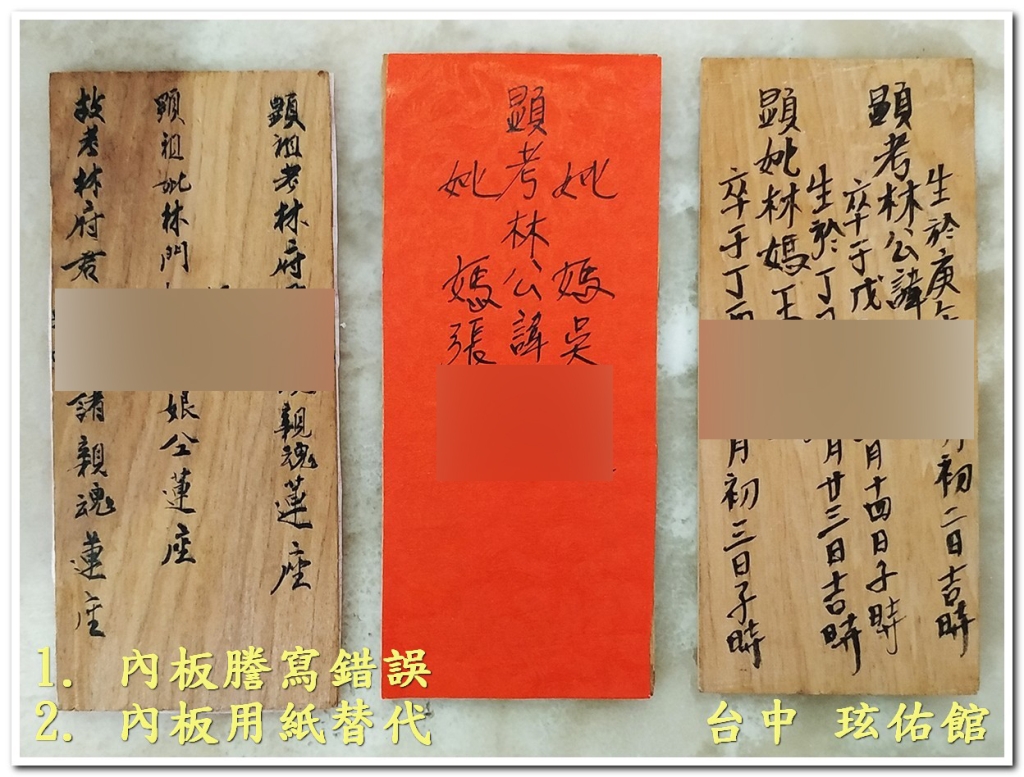 顯祖考林府 親魂蓮座
顯祖妣林門 娘仝蓮座
故考林府君 諸親魂蓮座
妣 媽吳
顯考林公諱
妣 媽張
生於庚 月初二日吉時
顯考林公諱
卒于戊 月十四日子時
生於丁 月廿三日吉時
顯妣林媽王
卒于丁 月初三日子時
1. 內板謄寫錯誤
2. 內板用紙替代
台中 玹佑館